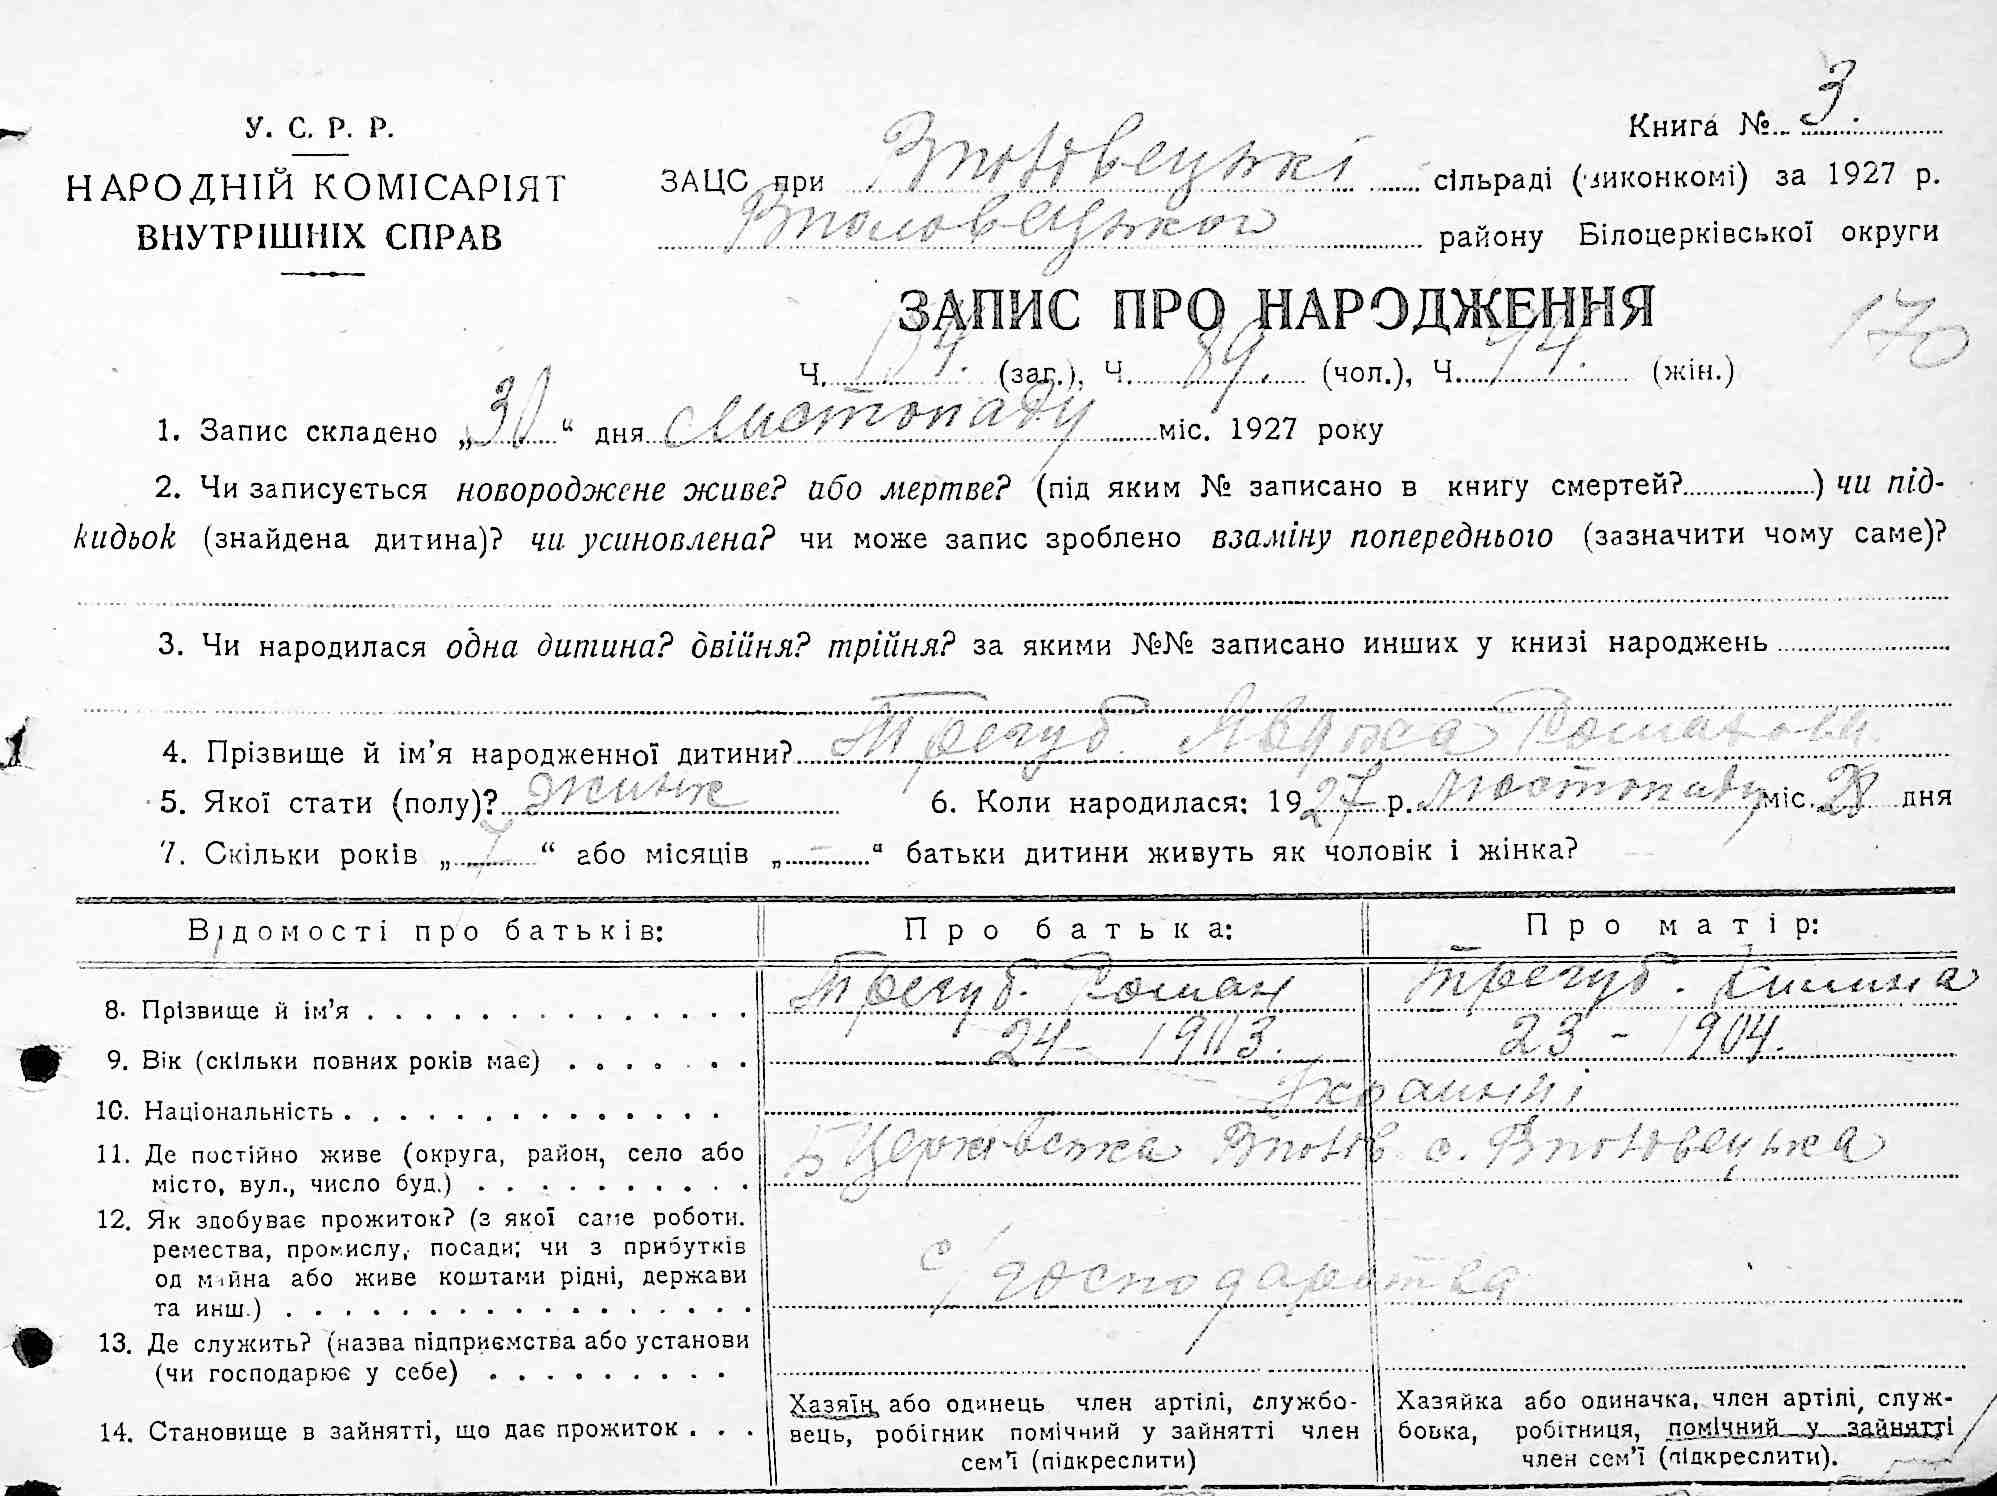 У. С. Р. Р.
НАРОДНІЙ КОМІСАРІЯТ
ВНУТРІШНІХ СПРАВ
Книга № 3.
ЗАЦС при сільраді (виконкомі) за 1927 р.
району Білоцерківської округи
ЗАПИС ПРО НАРОДЖЕННЯ
170
Ч. (заг.), Ч. 89. (чол.), Ч. (жін.)
1. Запис складено „30“ дня Листопаду міс. 1927 року
2. Чи записується новороджене живе? або мертве? (під яким № записано в книгу смертей? ) чи під-
кидьок (знайдена дитина)? чи усиновлена? чи може запис зроблено взаміну попереднього (зазначити чому саме)?
3. Чи народилася одна дитина? двійня? трійня? за якими №№ записано инших у книзі народжень
4. Прізвище й ім’я народженної дитини? Трегуб. Явдоха Романова.
5. Якої стати (полу)? 6. Коли народилася: 1927 р. листопаду міс. дня
7. Скільки років „7“ або місяців „-“ батьки дитини живуть як чоловік і жінка?
Відомості про батьків: Про батька: Про матір:
8. Прізвище й ім’я Трегуб. Роман Трегуб.
9. Вік (скільки повних років має) 24 - 1903. 23 - 1904.
10. Національність
11. Де постійно живе (округа, район, село або
місто, вул., число буд.) Б Церківська
12. Як здобуває прожиток? (з якої саме роботи.
ремества, промислу, посади; чи з прибутків
од майна або живе коштами рідні, держави
та инш.) с/господарства
13. Де служить? (назва підприємства або установи
(чи господарює у себе)
14. Становище в зайнятті, що дає прожиток
Хазяїн або одинець член артілі, службо-
вець, робігник помічний у зайнятті член
сем’ї (підкреслити)
Хазяйка або одиначка, член артілі, служ-
бовка, робітниця, помічний у зайнятті
член сем’ї (підкреслити).